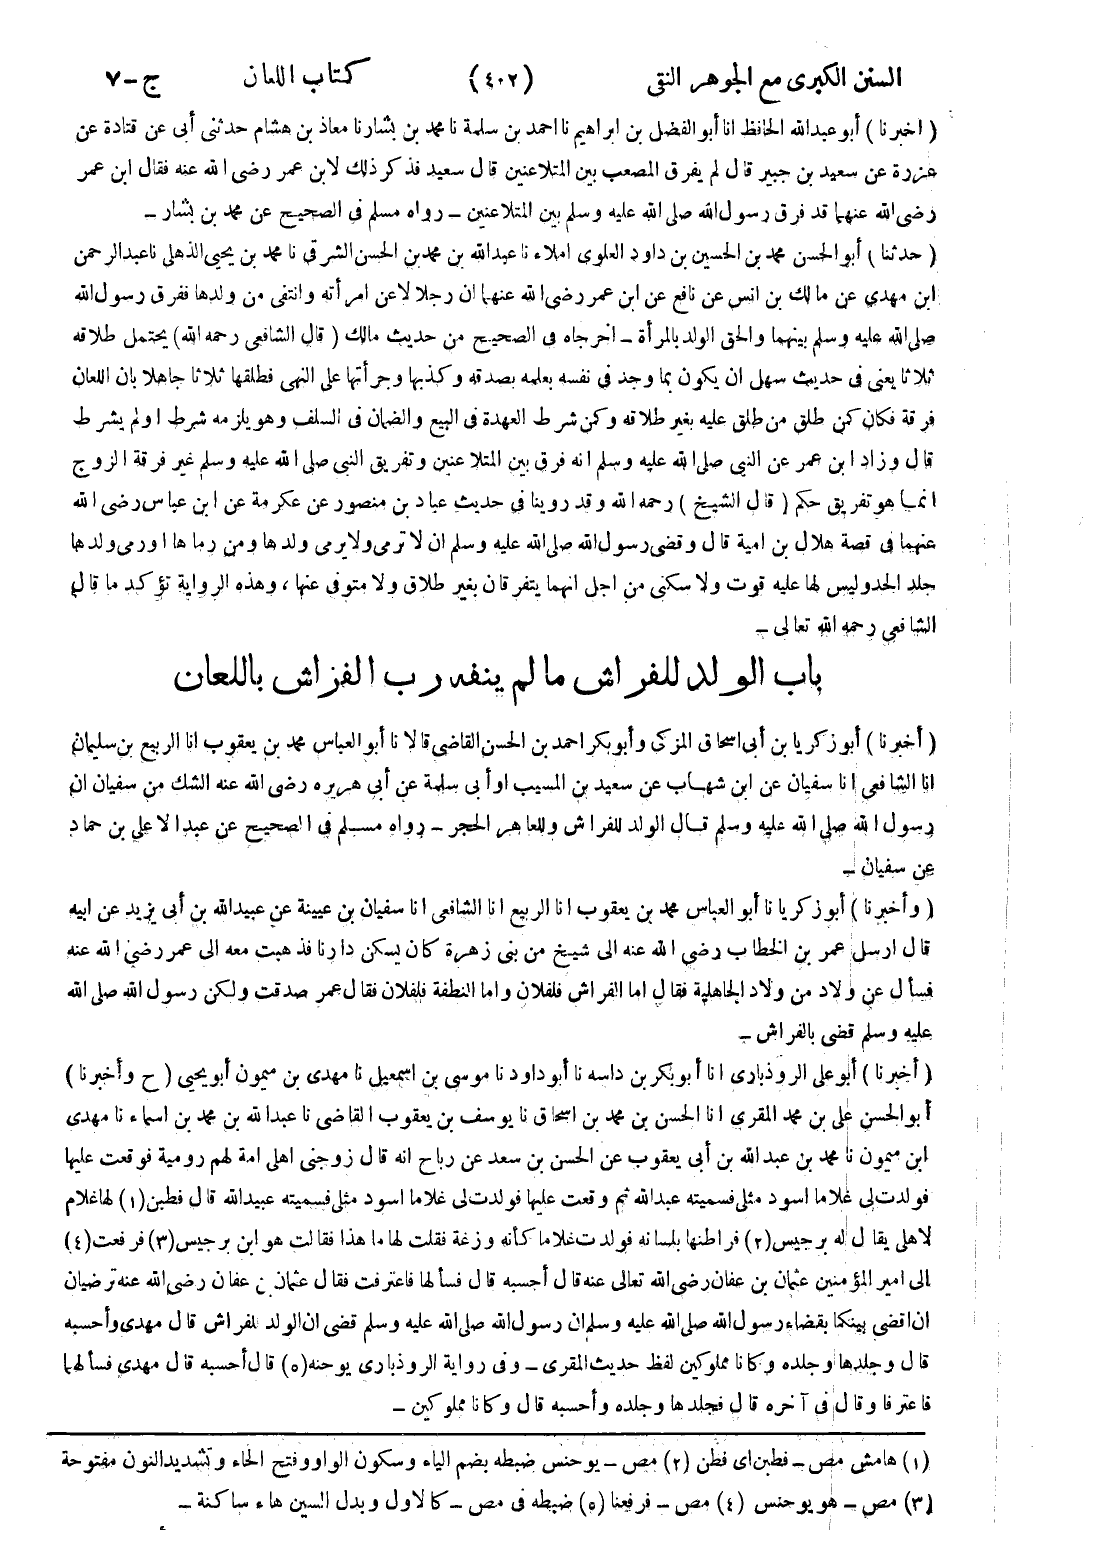 السنن الكبرى مع الجوهر النقى (٤٠٢) كتاب اللعان ج-٧
( اخبرنا ) أبو عبدالله الحافظ انا أبو الفضل بن ابراهيم نا احمد بن سلمة نا محمد بن بشار نا معاذ بن هشام حدثنى أبى عن قتادة عن
عزرة عن سعيد بن جبير قال لم يفرق المصعب بين المتلاعنين قال سعيد فذكر ذلك لابن عمر رضى الله عنه فقال ابن عمر
رضى الله عنهما قد فرق رسول الله صلى الله عليه وسلم بين المتلاعنين - رواه مسلم فى الصحيح عن محمد بن بشار -
( حدثنا ) أبو الحسن محمد بن الحسين بن داود العلوى املاء نا عبدالله بن محمد بن الحسن الشرقى نا محمد بن يحيى الذهلى نا عبدالرحمن
ابن مهدي عن مالك بن انس عن نافع عن ابن عمر رضى الله عنهما ان رجلا لاعن امرأته وانتفى من ولدها ففرق رسول الله
صلى الله عليه وسلم بينهما والحق الولد بالمرأة - اخرجاه فى الصحيح من حديث مالك ( قال الشافعى رحمه الله) يحتمل طلاقه
ثلاثا يعنى فى حديث سهل ان يكون بما وجد فى نفسه بعلمه بصدقه وكذبها وجرأتها على النهى فطلقها ثلاثا جاهلا بان اللعان
فرقة فكان كمن طلق من طلق عليه بغير طلاقه وكمن شرط العهدة فى البيع والضمان فى السلف وهو يلزمه شرط اولم يشرط
قال وزاد ابن عمر عن النبي صلى الله عليه وسلم انه فرق بين المتلاعنين وتفريق النبى صلى الله عليه وسلم غير فرقة الزوج
انما هو تفريق حكم ( قال الشيخ ) رحمه الله وقد روينا فى حديث عباد بن منصور عن عكرمة عن ابن عباس رضى الله
عنهما فى قصة هلال بن امية قال وقضى رسول الله صلى الله عليه وسلم ان لا ترمى ولا يرمى ولدها ومن رماها اورمى ولدها
جلد الحد وليس لها عليه قوت ولا سكنى من اجل انهما يتفرقان بغير طلاق ولا متوفى عنها ، وهذه الرواية تؤكد ما قال
الشافعي رحمه الله تعالى -
باب الولد للفراش ما لم ينفه رب الفراش باللعان
( أخبرنا ) أبو زكريا بن أبى اسحاق المزكى وأبو بكر احمد بن الحسن القاضى قالا نا أبو العباس محمد بن يعقوب انا الربيع بن سليمان
انا الشافعى انا سفيان عن ابن شهاب عن سعيد بن المسيب اوأبى سلمة عن أبي هريره رضى الله عنه الشك من سفيان ان
رسول الله صلى الله عليه وسلم قال الولد للفراش وللعاهر الحجر - رواه مسلم فى الصحيح عن عبد الاعلى بن حماد
عن سفيان -
( وأخبرنا ) أبو زكريا نا أبو العباس محمد بن يعقوب انا الربيع انا الشافعى انا سفيان بن عيينة عن عبيدالله بن أبى يزيد عن ابيه
قال ارسل عمر بن الخطاب رضي الله عنه الى شيخ من بنى زهرة كان يسكن دارنا فذهبت معه الى عمر رضي الله عنه
فسأل عن ولاد من ولاد الجاهلية فقال اما الفراش فلفلان واما النطفة فلفلان فقال عمر صدقت ولكن رسول الله صلى الله
عليه وسلم قضى بالفراش -
( أخبرنا ) أبو على الروذبارى انا أبو بكر بن داسه نا أبو داود نا موسى بن اسمعيل نا مهدى بن ميمون أبو يحيى ( ح وأخبرنا )
أبو الحسن على بن محمد المقرى انا الحسن بن محمد بن اسحاق نا يوسف بن يعقوب القاضى نا عبدالله بن محمد بن اسماء نا مهدى
ابن ميمون نا محمد بن عبدالله بن أبى يعقوب عن الحسن بن سعد عن رباح انه قال زوجنى اهلى امة لهم رومية فوقعت عليها
فولدت لى غلاما اسود مثلى فسميته عبدالله ثم وقعت عليها فولدت لى غلاما اسود مثلى فسميته عبيدالله قال فطبن(١) لها غلام
لاهلى يقال له برجيس(٢) فراطنها بلسانه فولدت غلاما كأنه وزغة فقلت لها ما هذا فقالت هو ابن برجيس(٣) فرفعت(٤)
الى امير المؤمنين عثمان بن عفان رضى الله تعالى عنه قال أحسبه قال فسألها فاعترفت فقال عثمان بن عفان رضى الله عنه ترضيان
ان اقضى بينكما بقضاء رسول الله صلى الله عليه وسلم ان رسول الله صلى الله عليه وسلم قضى ان الولد للفراش قال مهدى وأحسبه
قال وجلدها وجلده وكانا مملوكين لفظ حديث المقرى - وفى رواية الروذبارى يوحنه(٥) قال أحسبه قال مهدي فسألهما
فاعترفا وقال فى آخره قال فجلدها وجلده وأحسبه قال وكانا مملوكين -
(١) هامش مص - فطبن اى فطن (٢) مص - يوحنس ضبطه بضم الياء وسكون الواو وفتح الحاء وتشديد النون مفتوحة
(٣) مص - هو يوحنس (٤) مص - فرفعنا (٥) ضبطه فى مص - كالاول وبدل السين هاء ساكنة -